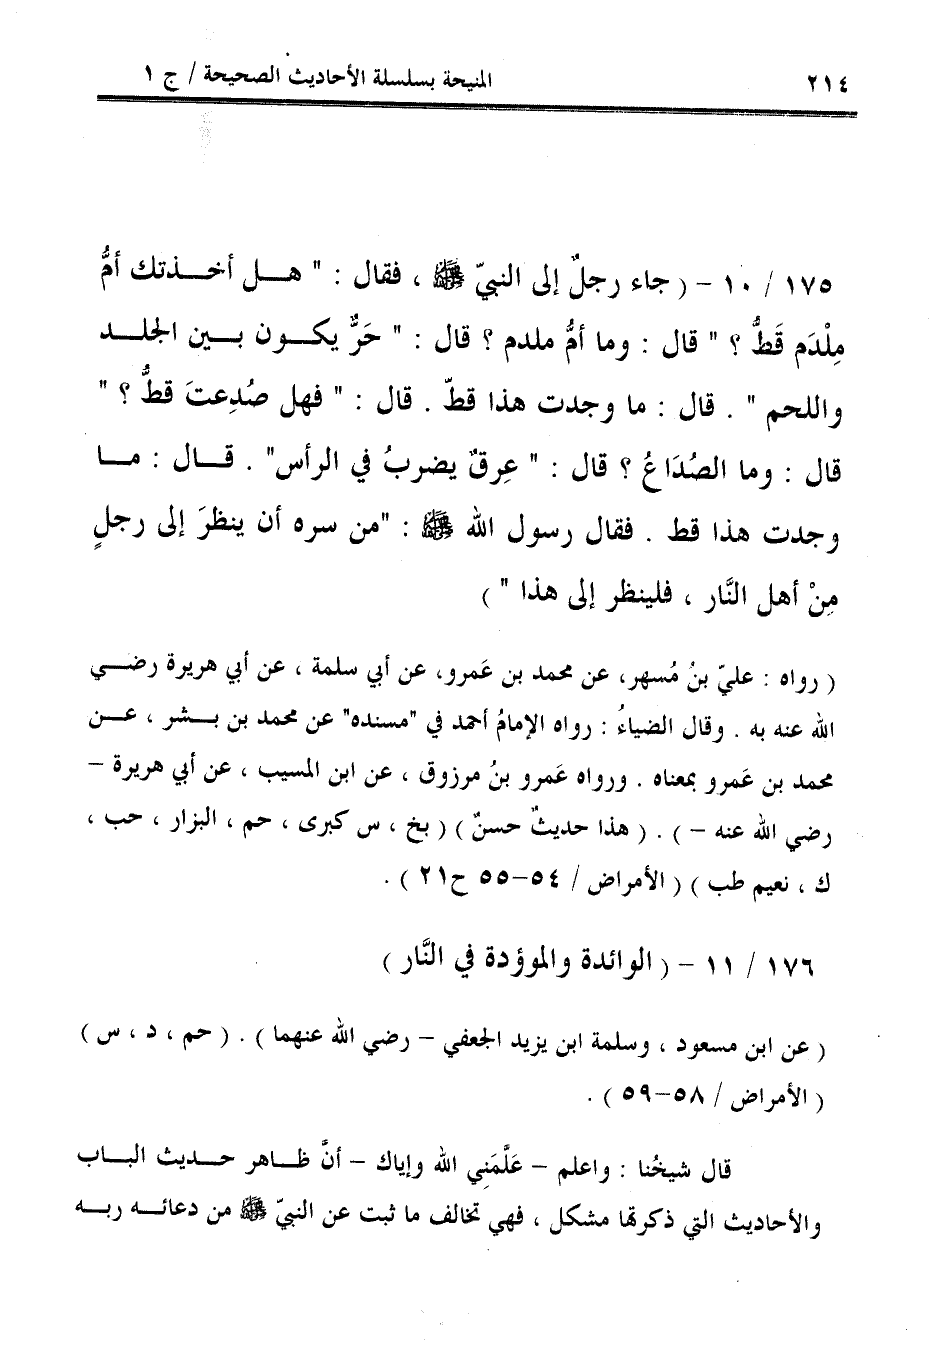 ٢١٤ المنيحة بسلسلة الأحاديث الصحيحة / ج ١
١٧٥ / ١٠ – ( جاء رجلٌ إلى النبيّ ﷺ ، فقال : " هــل أخــذتك أمُّ
مِلْدَم قَطُّ ؟ " قال : وما أمُّ ملدم ؟ قال : " حَرٌّ يكــون بــين الجلــد
واللحم " . قال : ما وجدت هذا قطّ . قال : " فهل صُدِعتَ قطُّ ؟ "
قال : وما الصُدَاعُ ؟ قال : " عِرقٌ يضربُ في الرأس" . قــال : مــا
وجدت هذا قط . فقال رسول الله ﷺ : "من سره أن ينظرَ إلى رجلٍ
مِنْ أهل النَّار ، فلينظر إلى هذا " )
( رواه : عليّ بنُ مُسهر، عن محمد بن عَمرو، عن أبي سلمة ، عن أبي هريرة رضــي
الله عنه به . وقال الضياءُ : رواه الإمامُ أحمد في "مسنده" عن محمد بن بــشر ، عــن
محمد بن عَمرو بمعناه . ورواه عَمرو بنُ مرزوق ، عن ابن المسيب ، عن أبي هريرة –
رضي الله عنه – ) . ( هذا حديثٌ حسنٌ ) ( بخ ، س كبرى ، حم ، البزار ، حب ،
ك ، نعيم طب ) ( الأمراض / ٥٤–٥٥ ح٢١ ) .
١٧٦ / ١١ – ( الوائدة والموؤدة في النَّار )
( عن ابن مسعود ، وسلمة ابن يزيد الجعفي – رضي الله عنهما ) . ( حم ، د ، س )
( الأمراض / ٥٨–٥٩ ) .
قال شيخُنا : واعلم – عَلَّمَنِي الله وإياك – أنَّ ظــاهر حــديث البــاب
والأحاديث التي ذكرتها مشكل ، فهي تخالف ما ثبت عن النبيّ ﷺ من دعائــه ربــه